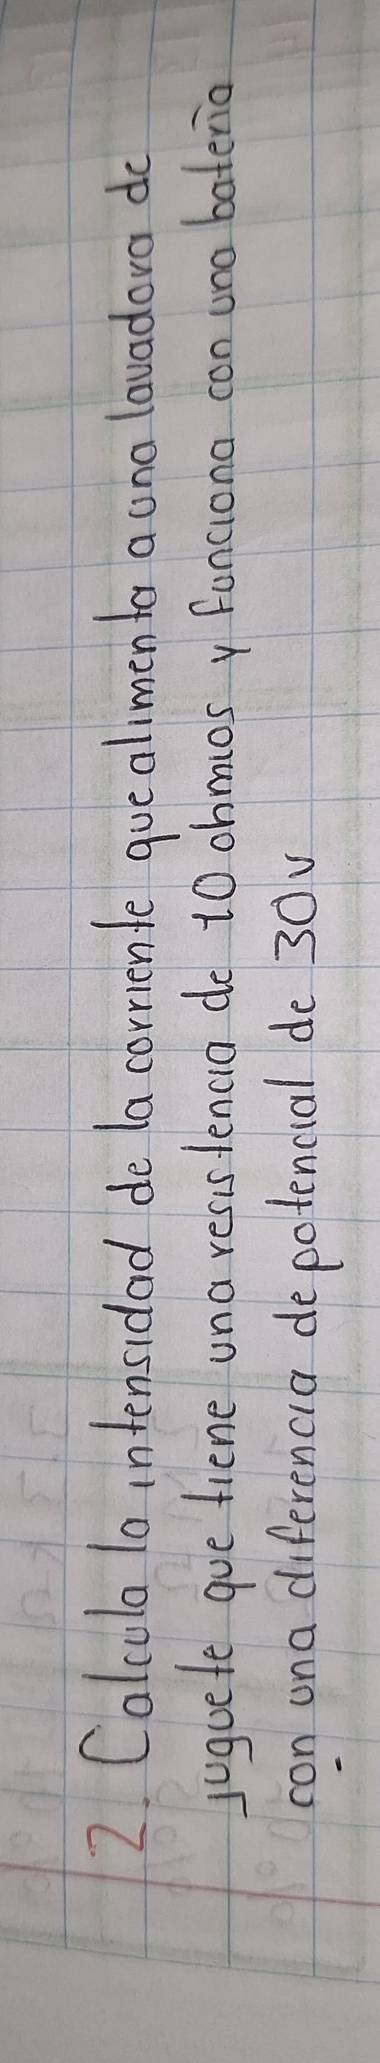 2. Calcula la intensidad de la corriente que alimenta a una lavadora de
juguete que tiene una resistencia de 10 ohmios y funciona con una batería
con una diferencia de potencial de 30v